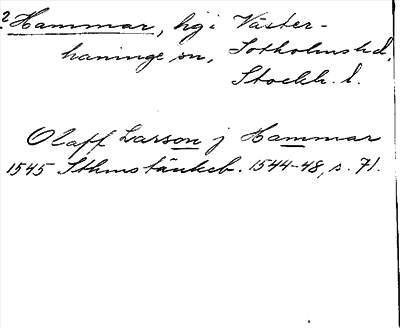 ? Hammar, hg i Väster-
haninge sn, Sotholms hd,
Stockh. l.
Olaff Larson j Hammar
1545 Sthms tänkeb. 1544-48, s. 71.